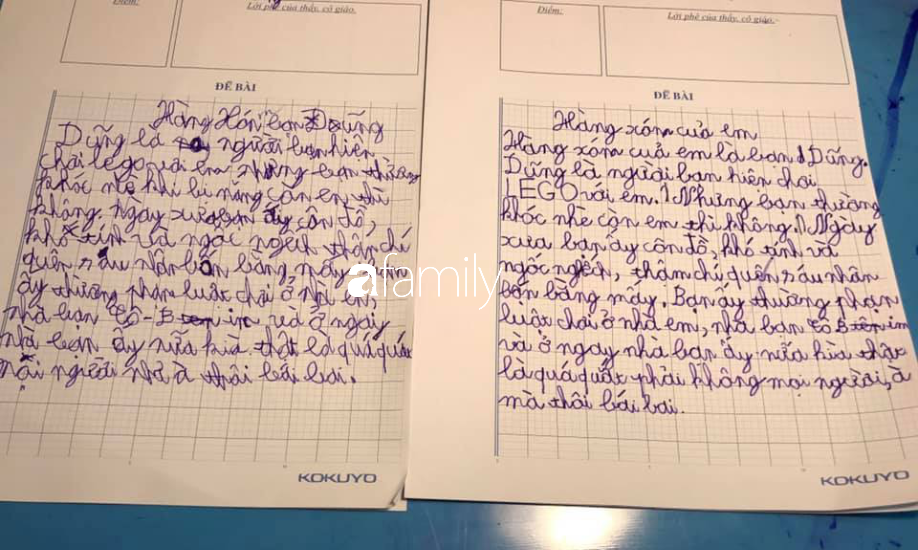 Điểm:
Lời phê của thầy, cô giáo.
ĐỀ BÀI
Hàng Xóm bạn Dũng
Dũng là người bạn hiên
chơi lego với em nhưng bạn thường
khóc nhè khi bị mắng còn em thì
không. Ngày xưa bạn ấy côn đồ,
khó tính và ngốc nghếch thậm chí
quên sáu nhân bốn bằng mấy
ấy thường phạm luật chơi ở nhà em,
nhà bạn Bô-B in và ở ngay
nhà bạn ấy nữa kìa thật là quá quắt
mọi người nhỉ à thôi bái bai.
KOKUYO
Điểm:
Lời phê của thầy, cô giáo.
ĐỀ BÀI
Hàng xóm của em
Hàng xóm của em là bạn Dũng.
Dũng là người bạn hiên chơi
LEGO với em. Nhưng bạn thường
khóc nhè còn em thì không. Ngày
xưa bạn ấy côn đồ, khó tính và
ngốc nghếch, thậm chí quên sáu nhân
bốn bằng mấy. Bạn ấy thường phạm
luật chơi ở nhà em, nhà bạn Bô B im
và ở ngay nhà bạn ấy nữa kìa thật
là quá quắt phải không mọi người, à
mà thôi bái bai.
KOKUYO
afamily